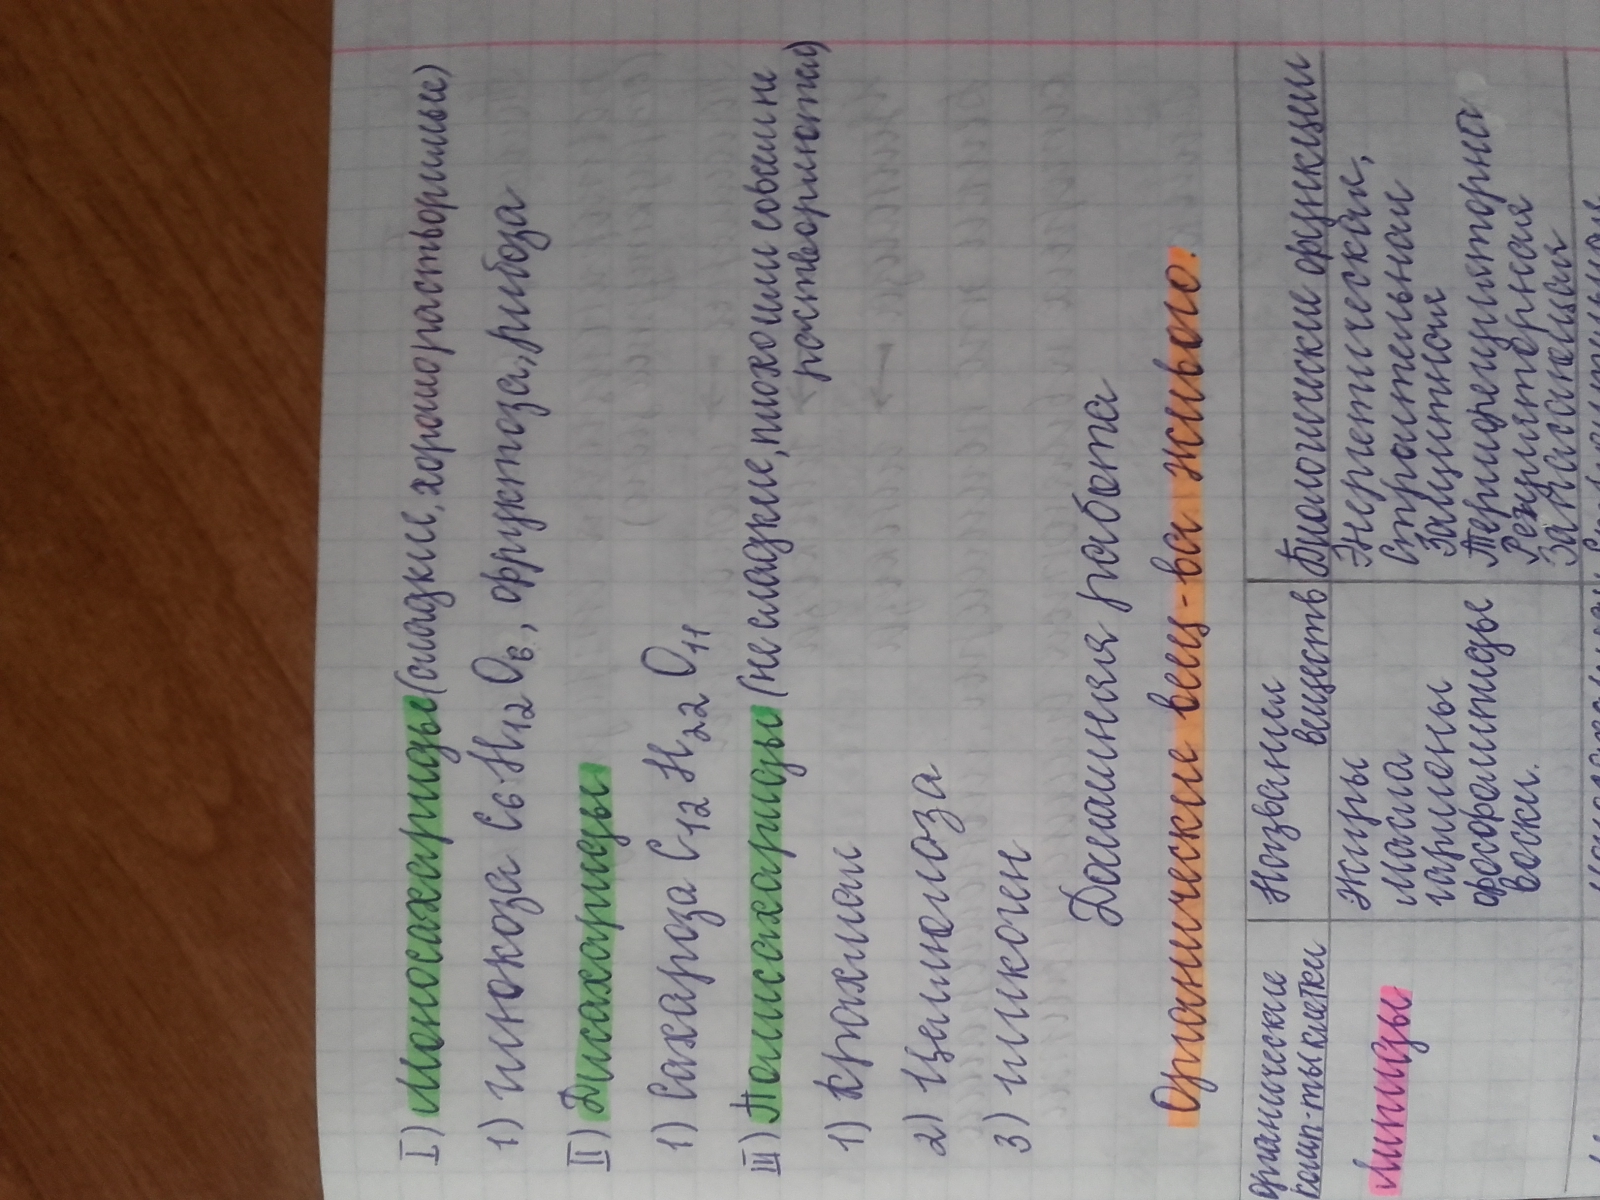 I) Моносахариды (сладкие, хорошо растворимые)
1) глюкоза C6H12O6, фруктоза, рибоза
II) Дисахариды
1) Сахароза C12H22O11
III) Полисахариды (не сладкие, плохо или совсем не
растворяются)
1) Крахмал
2) Целлюлоза
3) гликоген
Домашняя работа
Органические вещ-ва живого.
органические
комп-ты клетки
Название
веществ
Биологические функции
Липиды
жиры
масла
гормоны
фосфолипиды
воски.
Энергетическая,
Строительная
Защитная
Терморегуляторная
Регуляторная
Запасающая